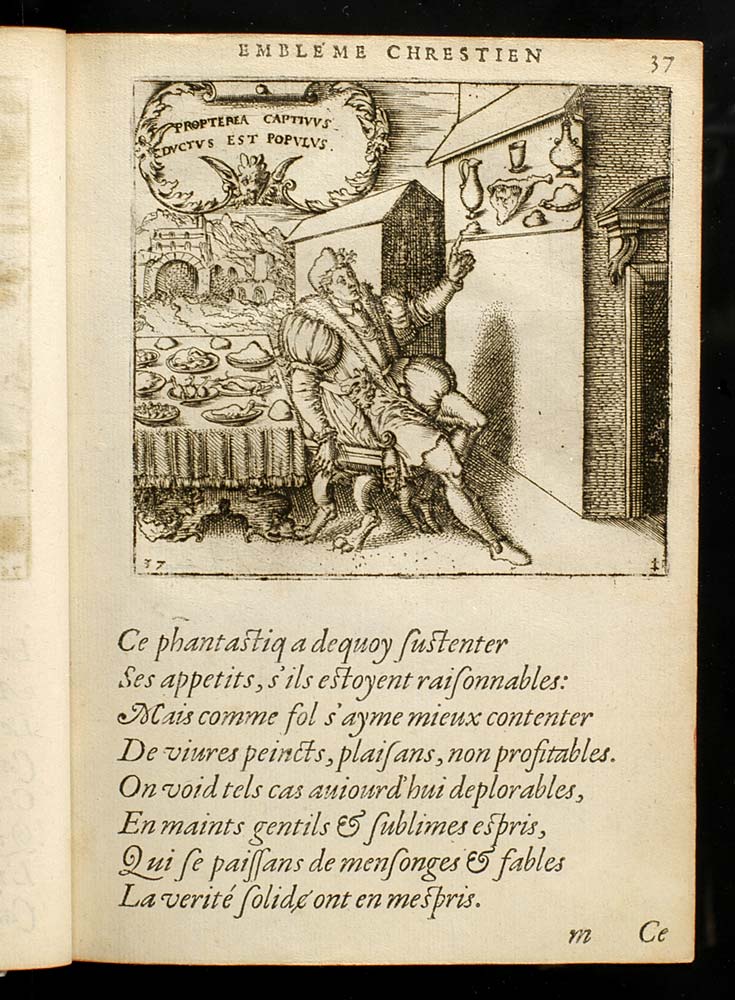 EMBLÉME CHRESTIEN
37
PROPTEREA CAPTIVVS
DVCTVS EST POPVLVS.
37
Ce phantastiq a dequoy ſustenter
Ses appetits, s'ils estoyent raiſonnables:
Mais comme fol s'ayme mieux contenter
De viures peincts, plaiſans, non profitables.
On void tels cas auiourd'hui deplorables,
En maints gentils & ſublimes eſpris,
Qui ſe paiſſans de menſonges & fables
La verité ſolide ont en meſpris.
m Ce